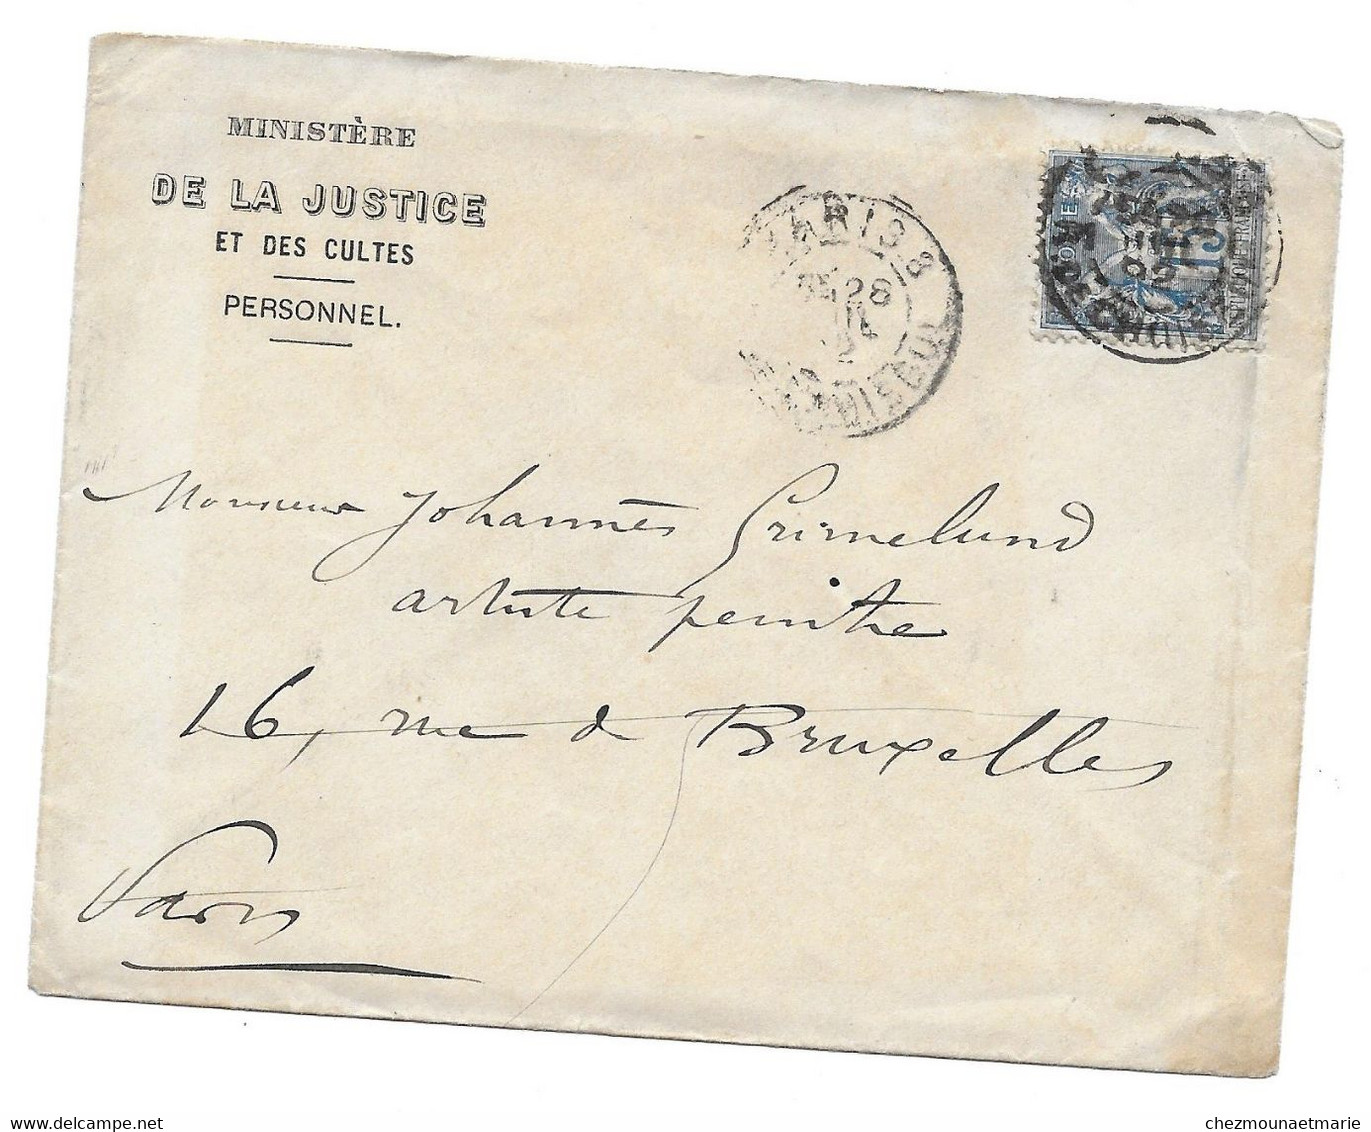 MINISTÈRE
DE LA JUSTICE
ET DES CULTES
PERSONNEL.
PARIS 8
28
15
Monsieur Johannès Grimelund
artiste peintre
16, rue de Bruxelles
Paris
www.delcampe.net
chezmounaetmarie